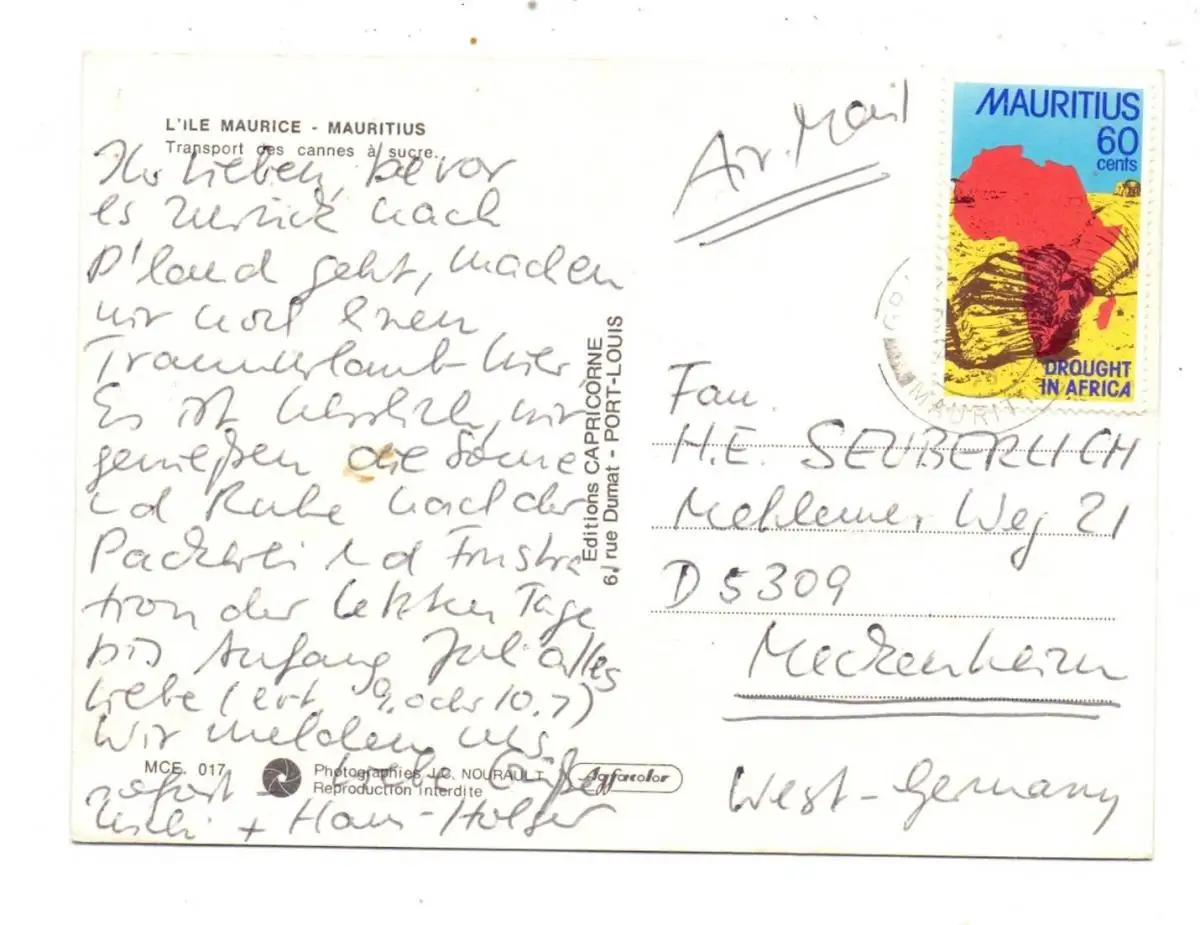 L'ILE MAURICE - MAURITIUS
Transport des cannes à sucre.
Ihr Lieben, bevor
es zurück nach
D'land geht, machen
wir noch einen
Traumurlaub hier
Es ist herrlich, wir
genießen die Sonne
und Ruhe nach der
Packerei und Frustra
tion der letzten Tage
bis Anfang Juli alles
Liebe ( 9. oder 10.7)
Wir melden uns
sofort Liebe Grüße
+ Hans-Holger
MCE. 017
Photographies J.C. NOURAULT
Reproduction interdite
Agfacolor
Editions CAPRICORNE
6, rue Dumat - PORT-LOUIS
Air Mail
MAURITIUS
60
cents
DROUGHT
IN AFRICA
MAURIT
Fam.
H.E. SEUBERLICH
Mehlemer Weg 21
D 5309
Meckenheim
West-Germany